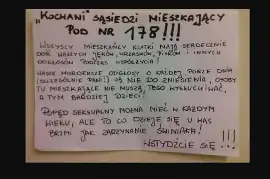 „KOCHANI" SĄSIEDZI MIESZKAJĄCY
POD NR 178!!!
WSZYSCY MIESZKAŃCY KLATKI MAJĄ SERDECZNIE
DOŚĆ WASZYCH JĘKÓW, WRZASKÓW, PISKÓW I INNYCH
ODGŁOSÓW PODCZAS WSPÓŁŻYCIA!
WASZE MORDERCZE ODGŁOSY O KAŻDEJ PORZE DNIA
(SZCZEGÓLNIE PANI!) SĄ NIE DO ZNIESIENIA, OSOBY
TU MIESZKAJĄCE NIE MUSZĄ TEGO WYSŁUCHIWAĆ,
A TYM BARDZIEJ DZIECI!
POPĘD SEKSUALNY MOŻNA MIEĆ W KAŻDYM
WIEKU, ALE TO CO DZIEJE SIĘ U WAS
BRZMI JAK ZARZYNANIE ŚWINIAKA!
WSTYDŹCIE SIĘ!!!